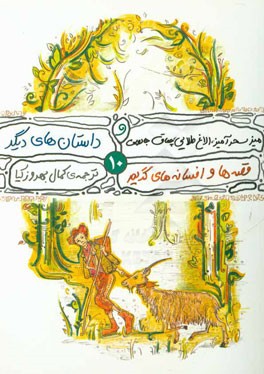 میز سحرآمیز، الاغ طلایی، چماق
و
داستان های دیگر
۱۰
قصه ها و افسانه های گریم
ترجمه ی کمال بهروزکیا